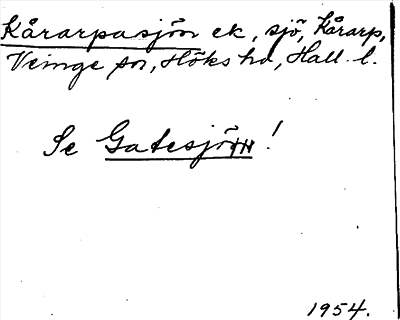 Kårarpasjön ek, sjö, Kårarp,
Veinge sn, Höks hd, Hall. l.
Se Gatesjön!
1954.